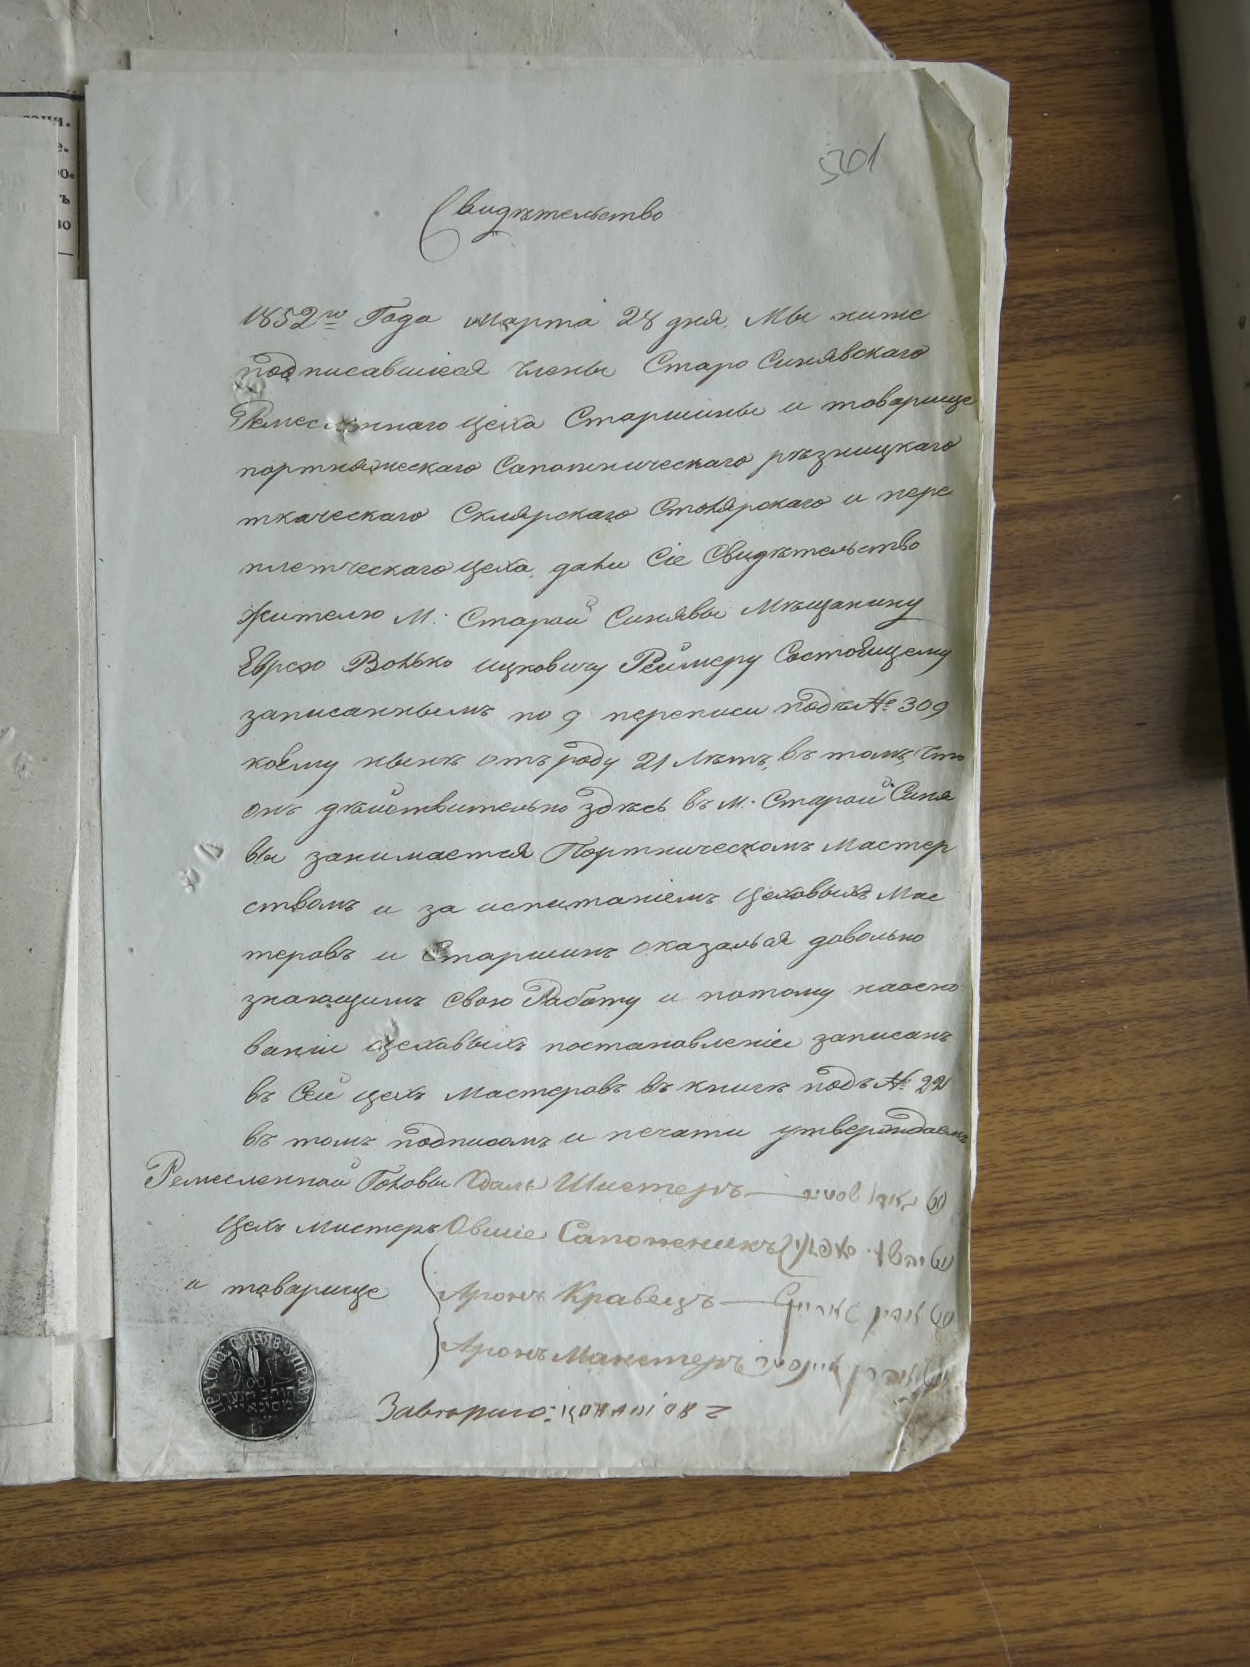 301
Свидѣтельство
1852го Года Марта 28 дня Мы ниже
подписавшіеся Члены Старо Синявскаго
Ремесленнаго Цеха Старшины и товарище
портняжескаго Сапожническаго рѣзницкаго
ткаческаго Склярскаго Столярскаго и пере
плетческаго Цеха, дали Сіе Свидѣтельство
Жителю М. Старой Синявы Мѣщанину
Еврею Волько Ицковичу Реймеру Състоящему
записаннымъ по 9 переписи подъ № 309
коему нынѣ отъ роду 21 лѣтъ, въ томъ, Что
онъ дѣйствительно здѣсь въ М. Старой Синя
вы занимается Портническомъ Мастер
ствомъ и за испитаніемъ Цеховыхъ Мас
теровъ и Старшинъ оказалься довольно
знающимъ Свою Работу и потому наосно
ваніи Цеховыхъ постановленіи записанъ
въ Сей цехъ Мастеровъ въ книгѣ подъ № 221
въ томъ подписомъ и печати утверждаемъ
Ремесленной Головы Удаль Шистеръ
Цехъ Мистеръ Овшіе Сапожникъ
и товарище Аронъ Кравецъ
Аронъ Макстеръ